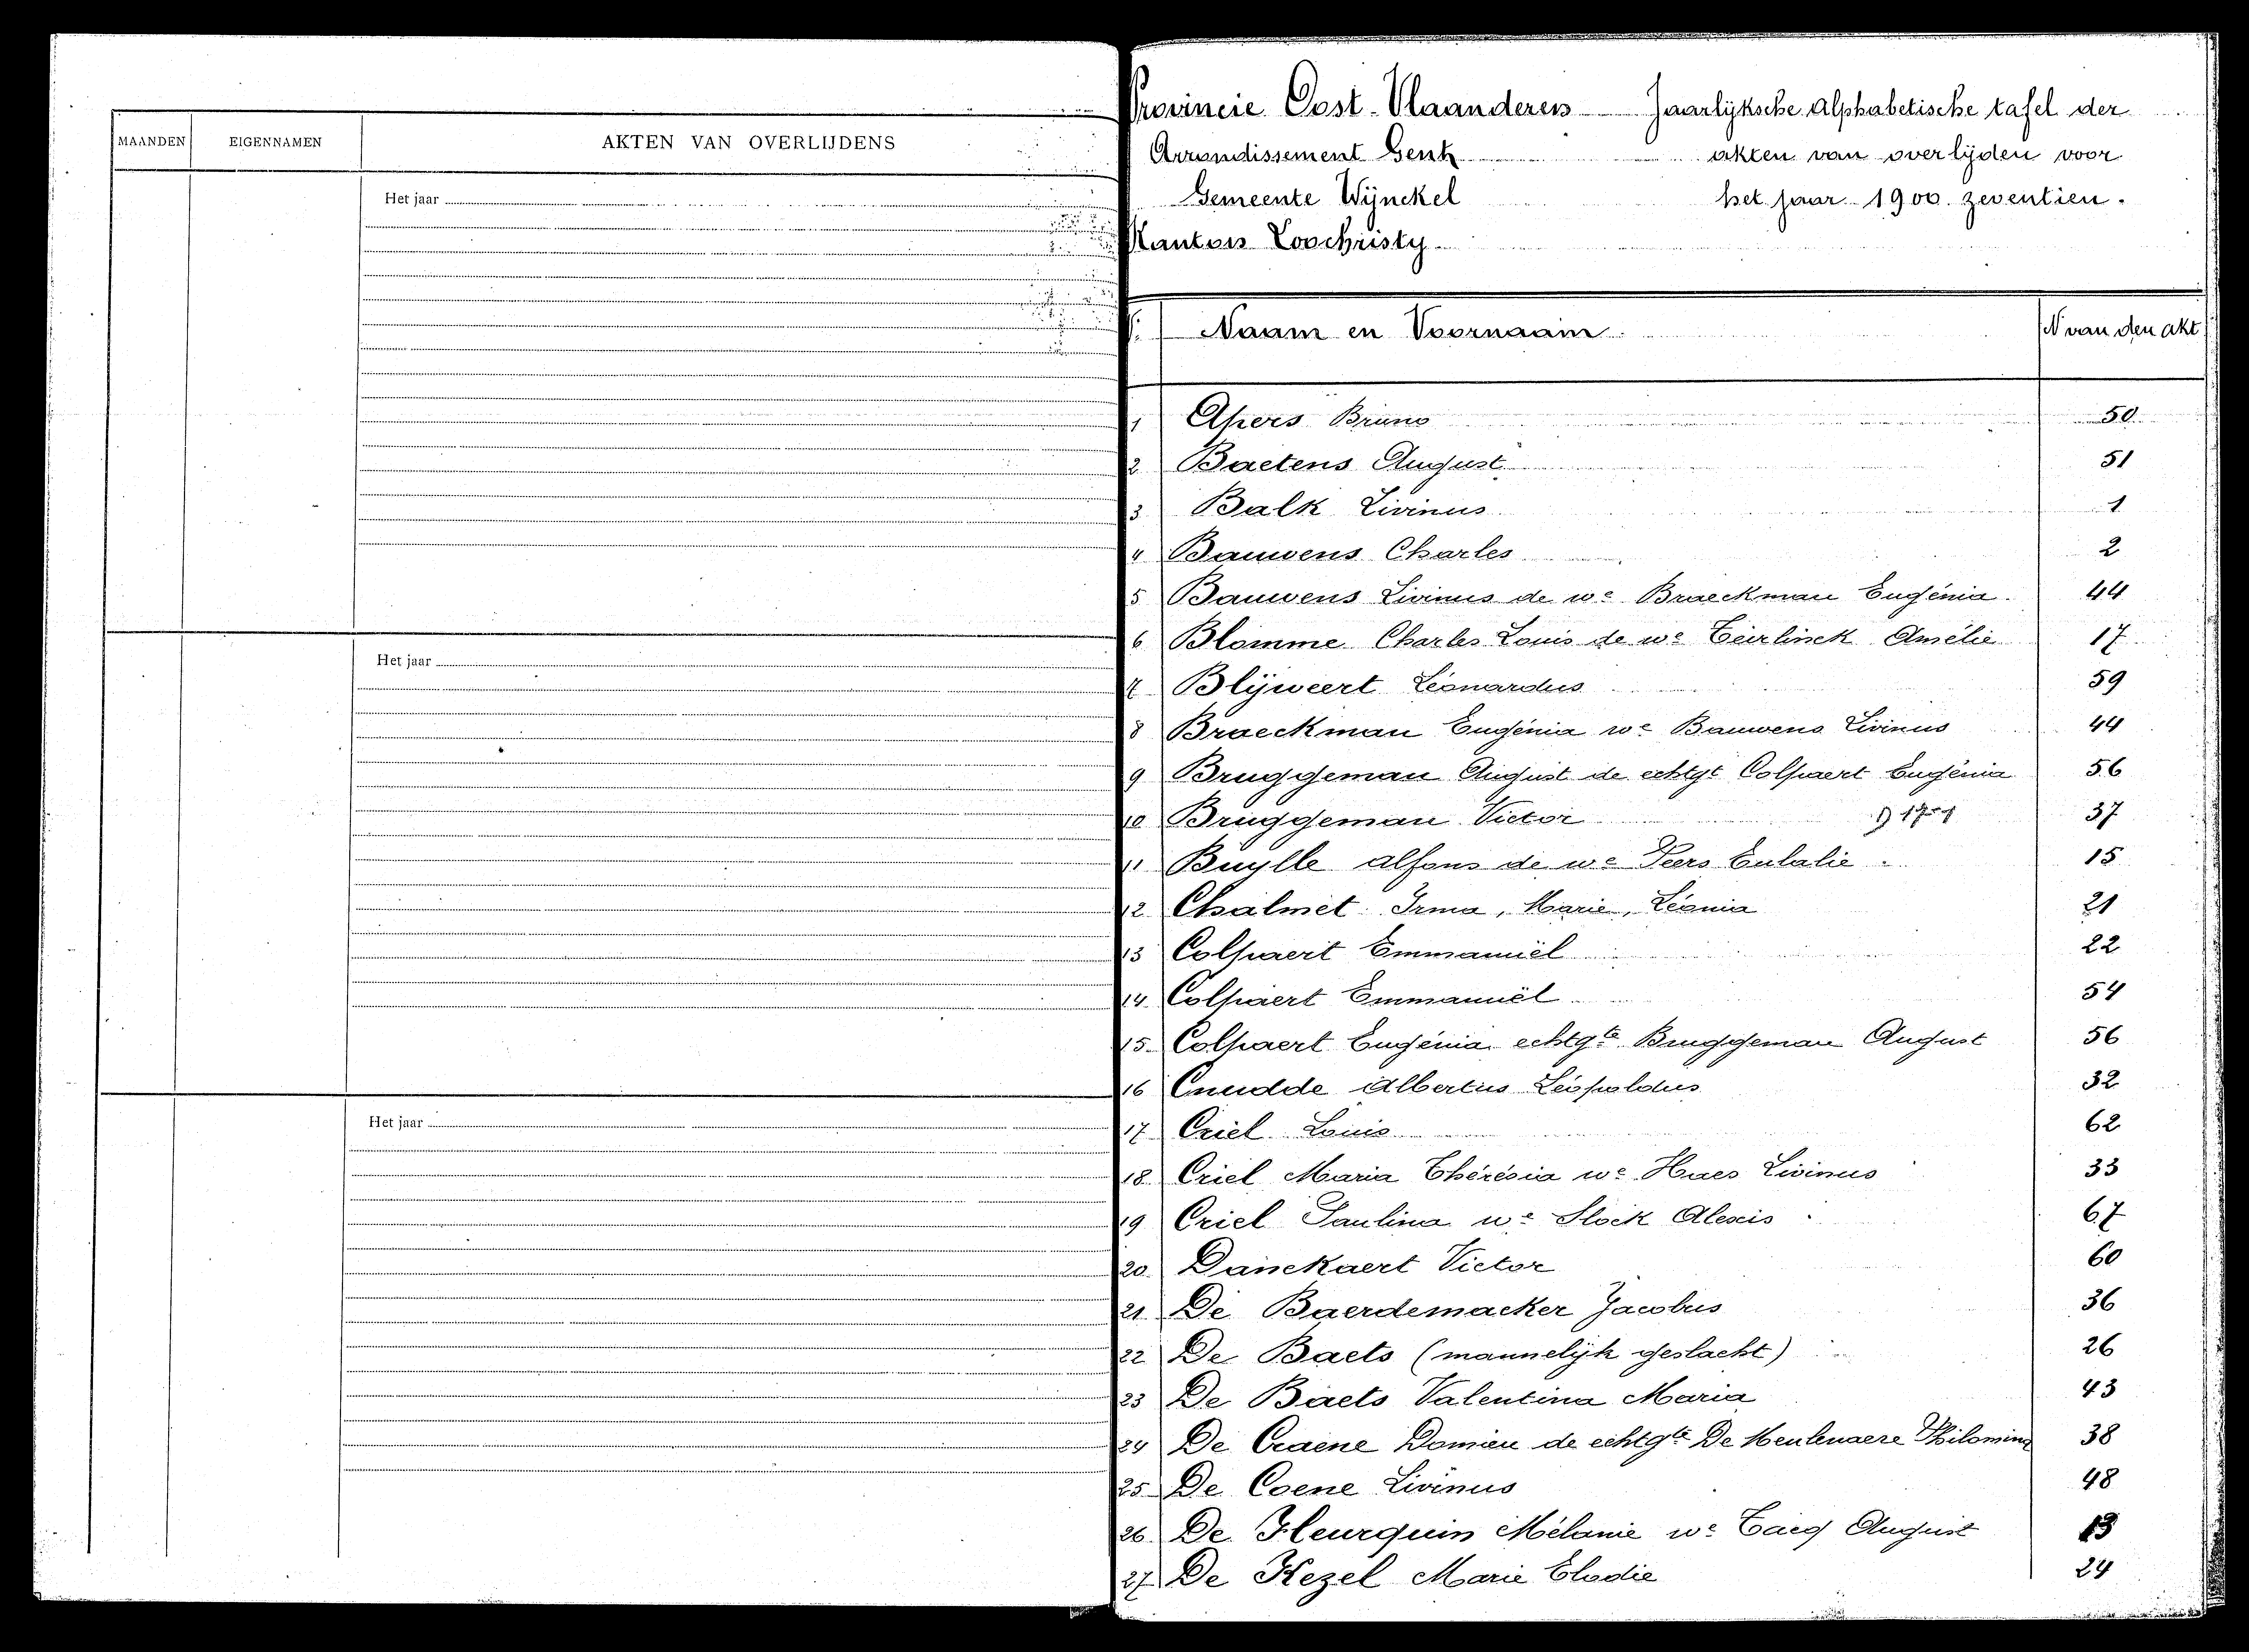 MAANDEN EIGENNAMEN AKTEN VAN OVERLIJDENS
Het jaar
Het jaar
Het jaar
Provincie Oost-Vlaanderen Jaarlijksche Alphabetische tafel der
Arrondissement Gent akten van overlijden voor
Gemeente Wijnckel het jaar 1900 zeventien.
Kanton Loochristy
Naam en Voornaam N van den akt
1 Apers Bruno 50
2 Baetens August 51
3 Balk Livinus 1
4 Bauwens Charles 2
5 Bauwens Livinus de we Braeckman Eugénia 44
6 Blomme Charles Louis de we Teirlinck Amélie 17
7 Blijweert Léonardus 59
8 Braeckman Eugénia we Bauwens Livinus 44
9 Bruggeman August de echtgt Colpaert Eugénia 56
10 Bruggeman Victor 37
11 Buylle Alfons de we Peers Eulalie 15
12 Chalmet Irma, Marie, Léonia 21
13 Colpaert Emmanuël 22
14 Colpaert Emmanuël 54
15 Colpaert Eugénia echtgte Bruggeman August 56
16 Cnudde Albertus Léopoldus 32
17 Criel Louis 62
18 Criel Maria Thérésia we Haes Livinus 33
19 Criel Paulina we Slock Alexis 67
20 Danckaert Victor 60
21 De Baerdemacker Jacobus 36
22 De Baets (mannelijk geslacht) 26
23 De Baets Valentina Maria 43
24 De Craene Domien de echtgte De Meulenaere Philomina 38
25 De Coene Livinus 48
26 De Fleurquin Mélanie we Taeg August 13
27 De Kezel Marie Elodie 24